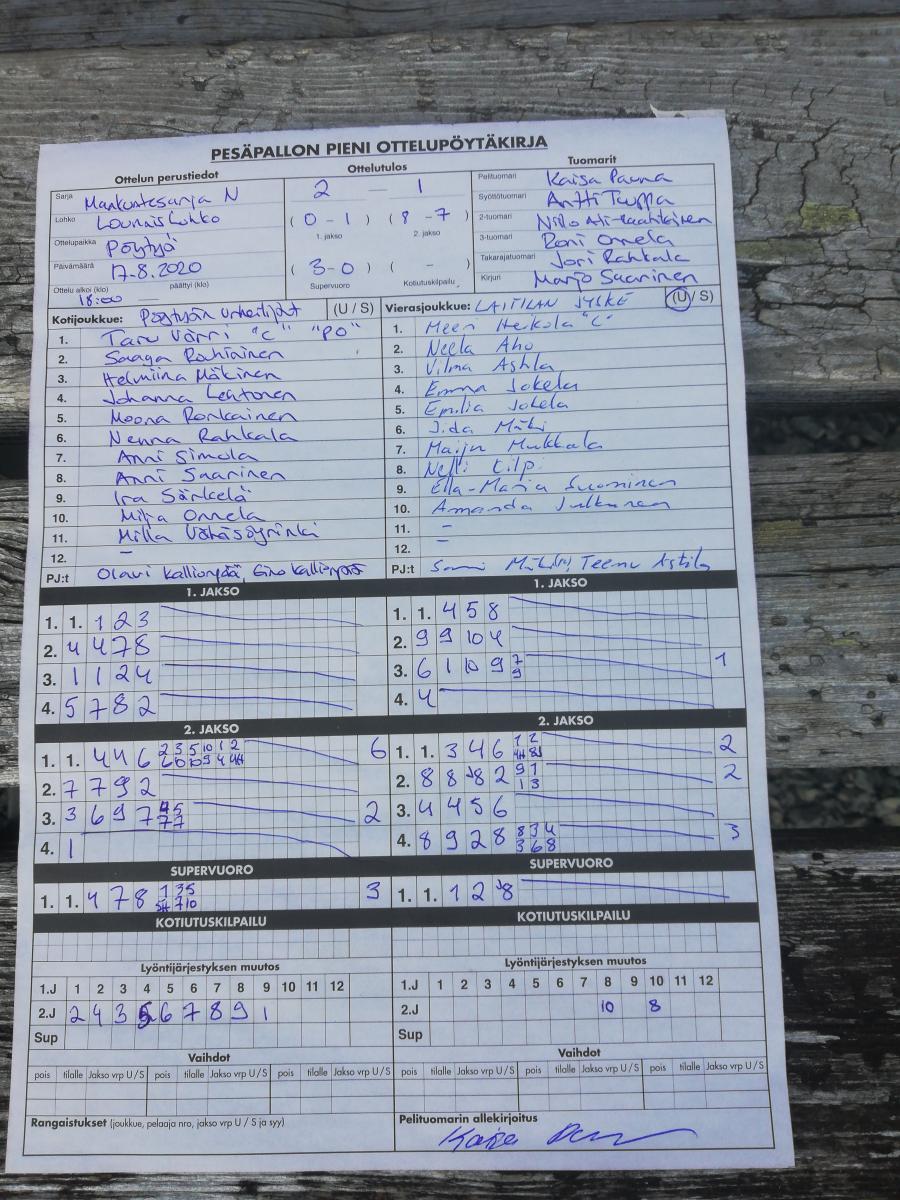 PESÄPALLON PIENI OTTELUPÖYTÄKIRJA
Ottelun perustiedot
Sarja Maakuntasarja N
Lohko Lounaislohko
Ottelupaikka Pöytyä
Päivämäärä 17.8.2020
Ottelu alkoi (klo) päättyi (klo)
18:00 —
Ottelutulos
2 — 1
( 0 - 1 ) ( 8 - 7 )
1. jakso 2. jakso
( 3-0 ) ( - )
Supervuoro Kotiutuskilpailu
Tuomarit
Pelituomari Kaisa
Syöttötuomari Antti
2-tuomari
3-tuomari Roni Onnela
Takarajatuomari Jori Rahkala
Kirjuri Marjo Saarinen
Kotijoukkue: Pöytyän Urheilijat (U / S)
1. Taru Värri "C" "PO"
2. Saaga Rautiainen
3. Helmiina Mäkinen
4. Johanna Lehtonen
5. Moona Ronkainen
6. Nenna Rahkala
7. Anni Simola
8. Anni Saarinen
9. Ira Särkelä
10. Milja Onnela
11. Milla Vähäsöyrinki
12. —
PJ:t Olavi Kallionpää, Eino Kallionpää
Vierasjoukkue: LAITILAN JYSKE (U / S)
1. Meeri Heikola "C"
2. Neela Aho
3. Vilma
4. Emma Jokela
5. Emilia Jokela
6. Iida Mäki
7. Maiju Mukkala
8. Nelli Kilpi
9. Ella-Maria Suominen
10. Amanda Julkunen
11. —
12. —
PJ:t Teemu
1. JAKSO
1. 1. 1 2 3
2. 4 4 7 8
3. 1 1 2 4
4. 5 7 8 2
1. JAKSO
1. 1. 4 5 8
2. 9 9 10 4
3. 6 1 10 9 7 1
9
4. 4
2. JAKSO
1. 1. 4 4 6 2 3 5 10 1 2 6
2. 7 7 9 2
3. 3 6 9 7 2
4. 1
2. JAKSO
1. 1. 3 4 6 1 2 2
2. 8 8 8 2 9 1 2
1 3
3. 4 4 5 6
4. 8 9 2 8 8 3 4 3
3 6 8
SUPERVUORO
1. 1. 4 7 8 1 3 5 3
7 10
SUPERVUORO
1. 1. 1 2 8
KOTIUTUSKILPAILU
KOTIUTUSKILPAILU
Lyöntijärjestyksen muutos
1.J 1 2 3 4 5 6 7 8 9 10 11 12
2.J 2 4 3 5 6 7 8 9 1
Sup
Lyöntijärjestyksen muutos
1.J 1 2 3 4 5 6 7 8 9 10 11 12
2.J 10 8
Sup
Vaihdot
pois tilalle Jakso vrp U / S pois tilalle Jakso vrp U / S pois tilalle Jakso vrp U / S
Vaihdot
pois tilalle Jakso vrp U / S pois tilalle Jakso vrp U / S pois tilalle Jakso vrp U / S
Rangaistukset (joukkue, pelaaja nro, jakso vrp U / S ja syy)
Pelituomarin allekirjoitus
Kaisa